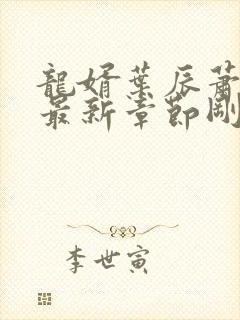 龍婿葉辰蕭
最新章節剛
李世寅